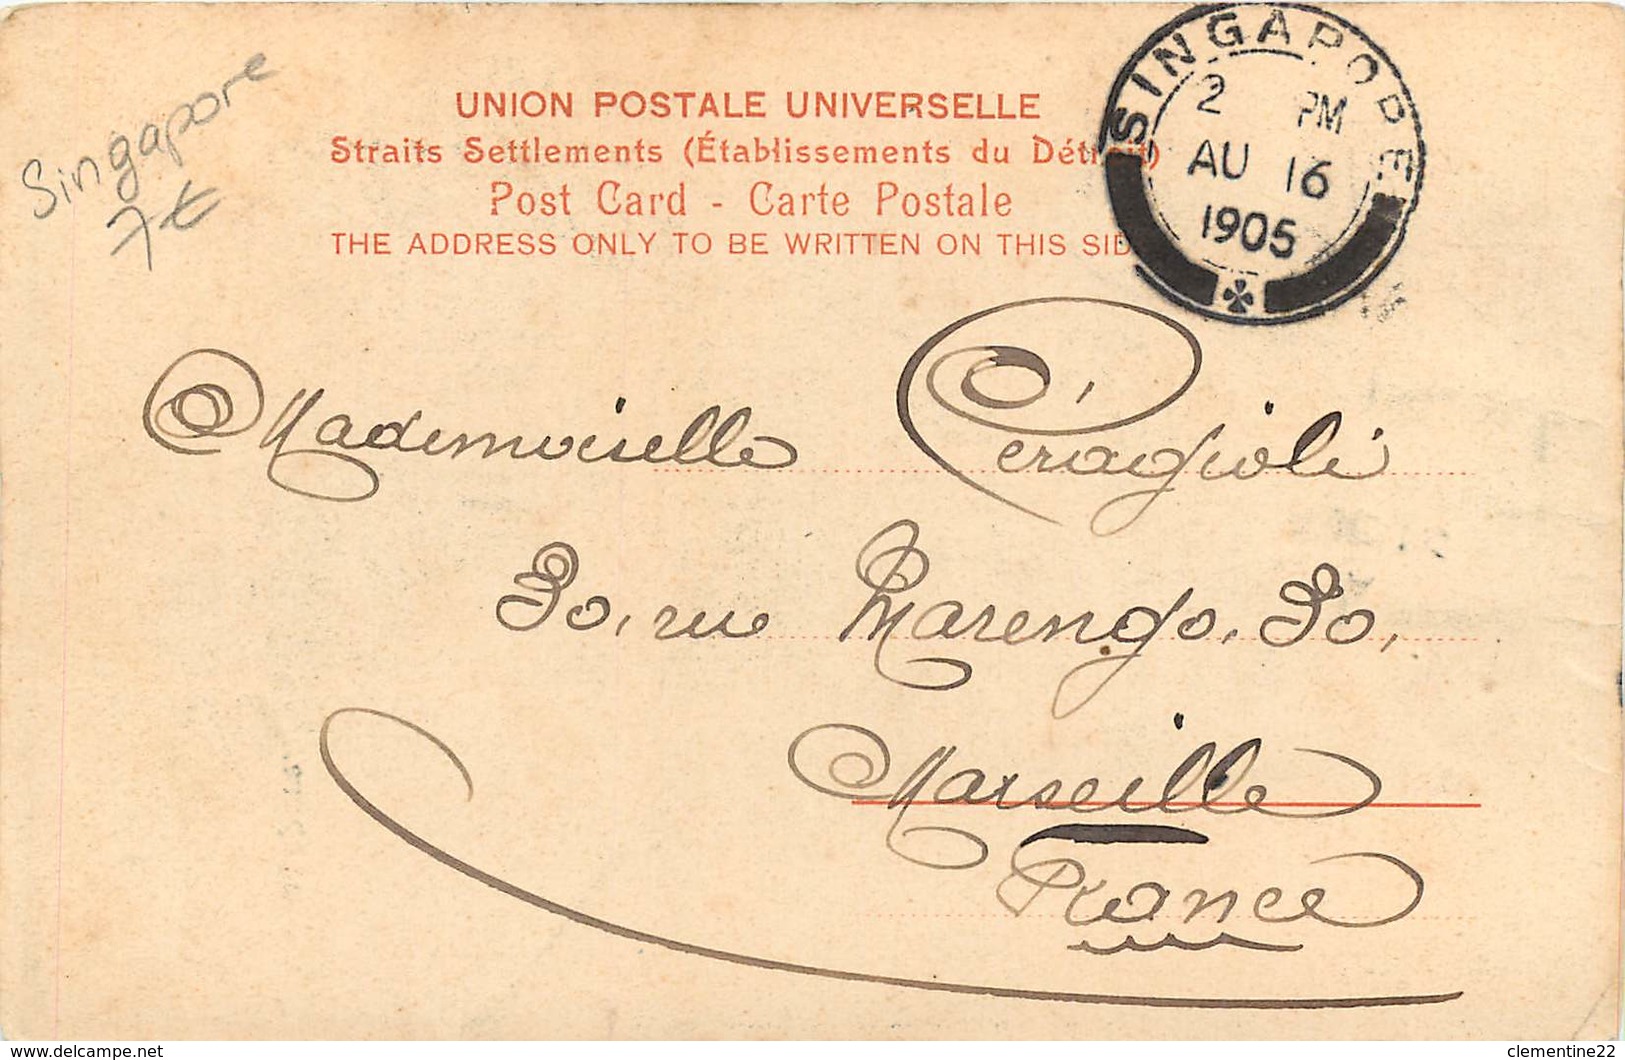 Singapore
7€
UNION POSTALE UNIVERSELLE
Straits Settlements (Établissements du Détroit)
Post Card - Carte Postale
THE ADDRESS ONLY TO BE WRITTEN ON THIS SID
SINGAPORE
2 PM
AU 16
1905
Mademoiselle Péragioli
30, rue Marengo. 30,
Marseille
France
delcampe.net
clementine22